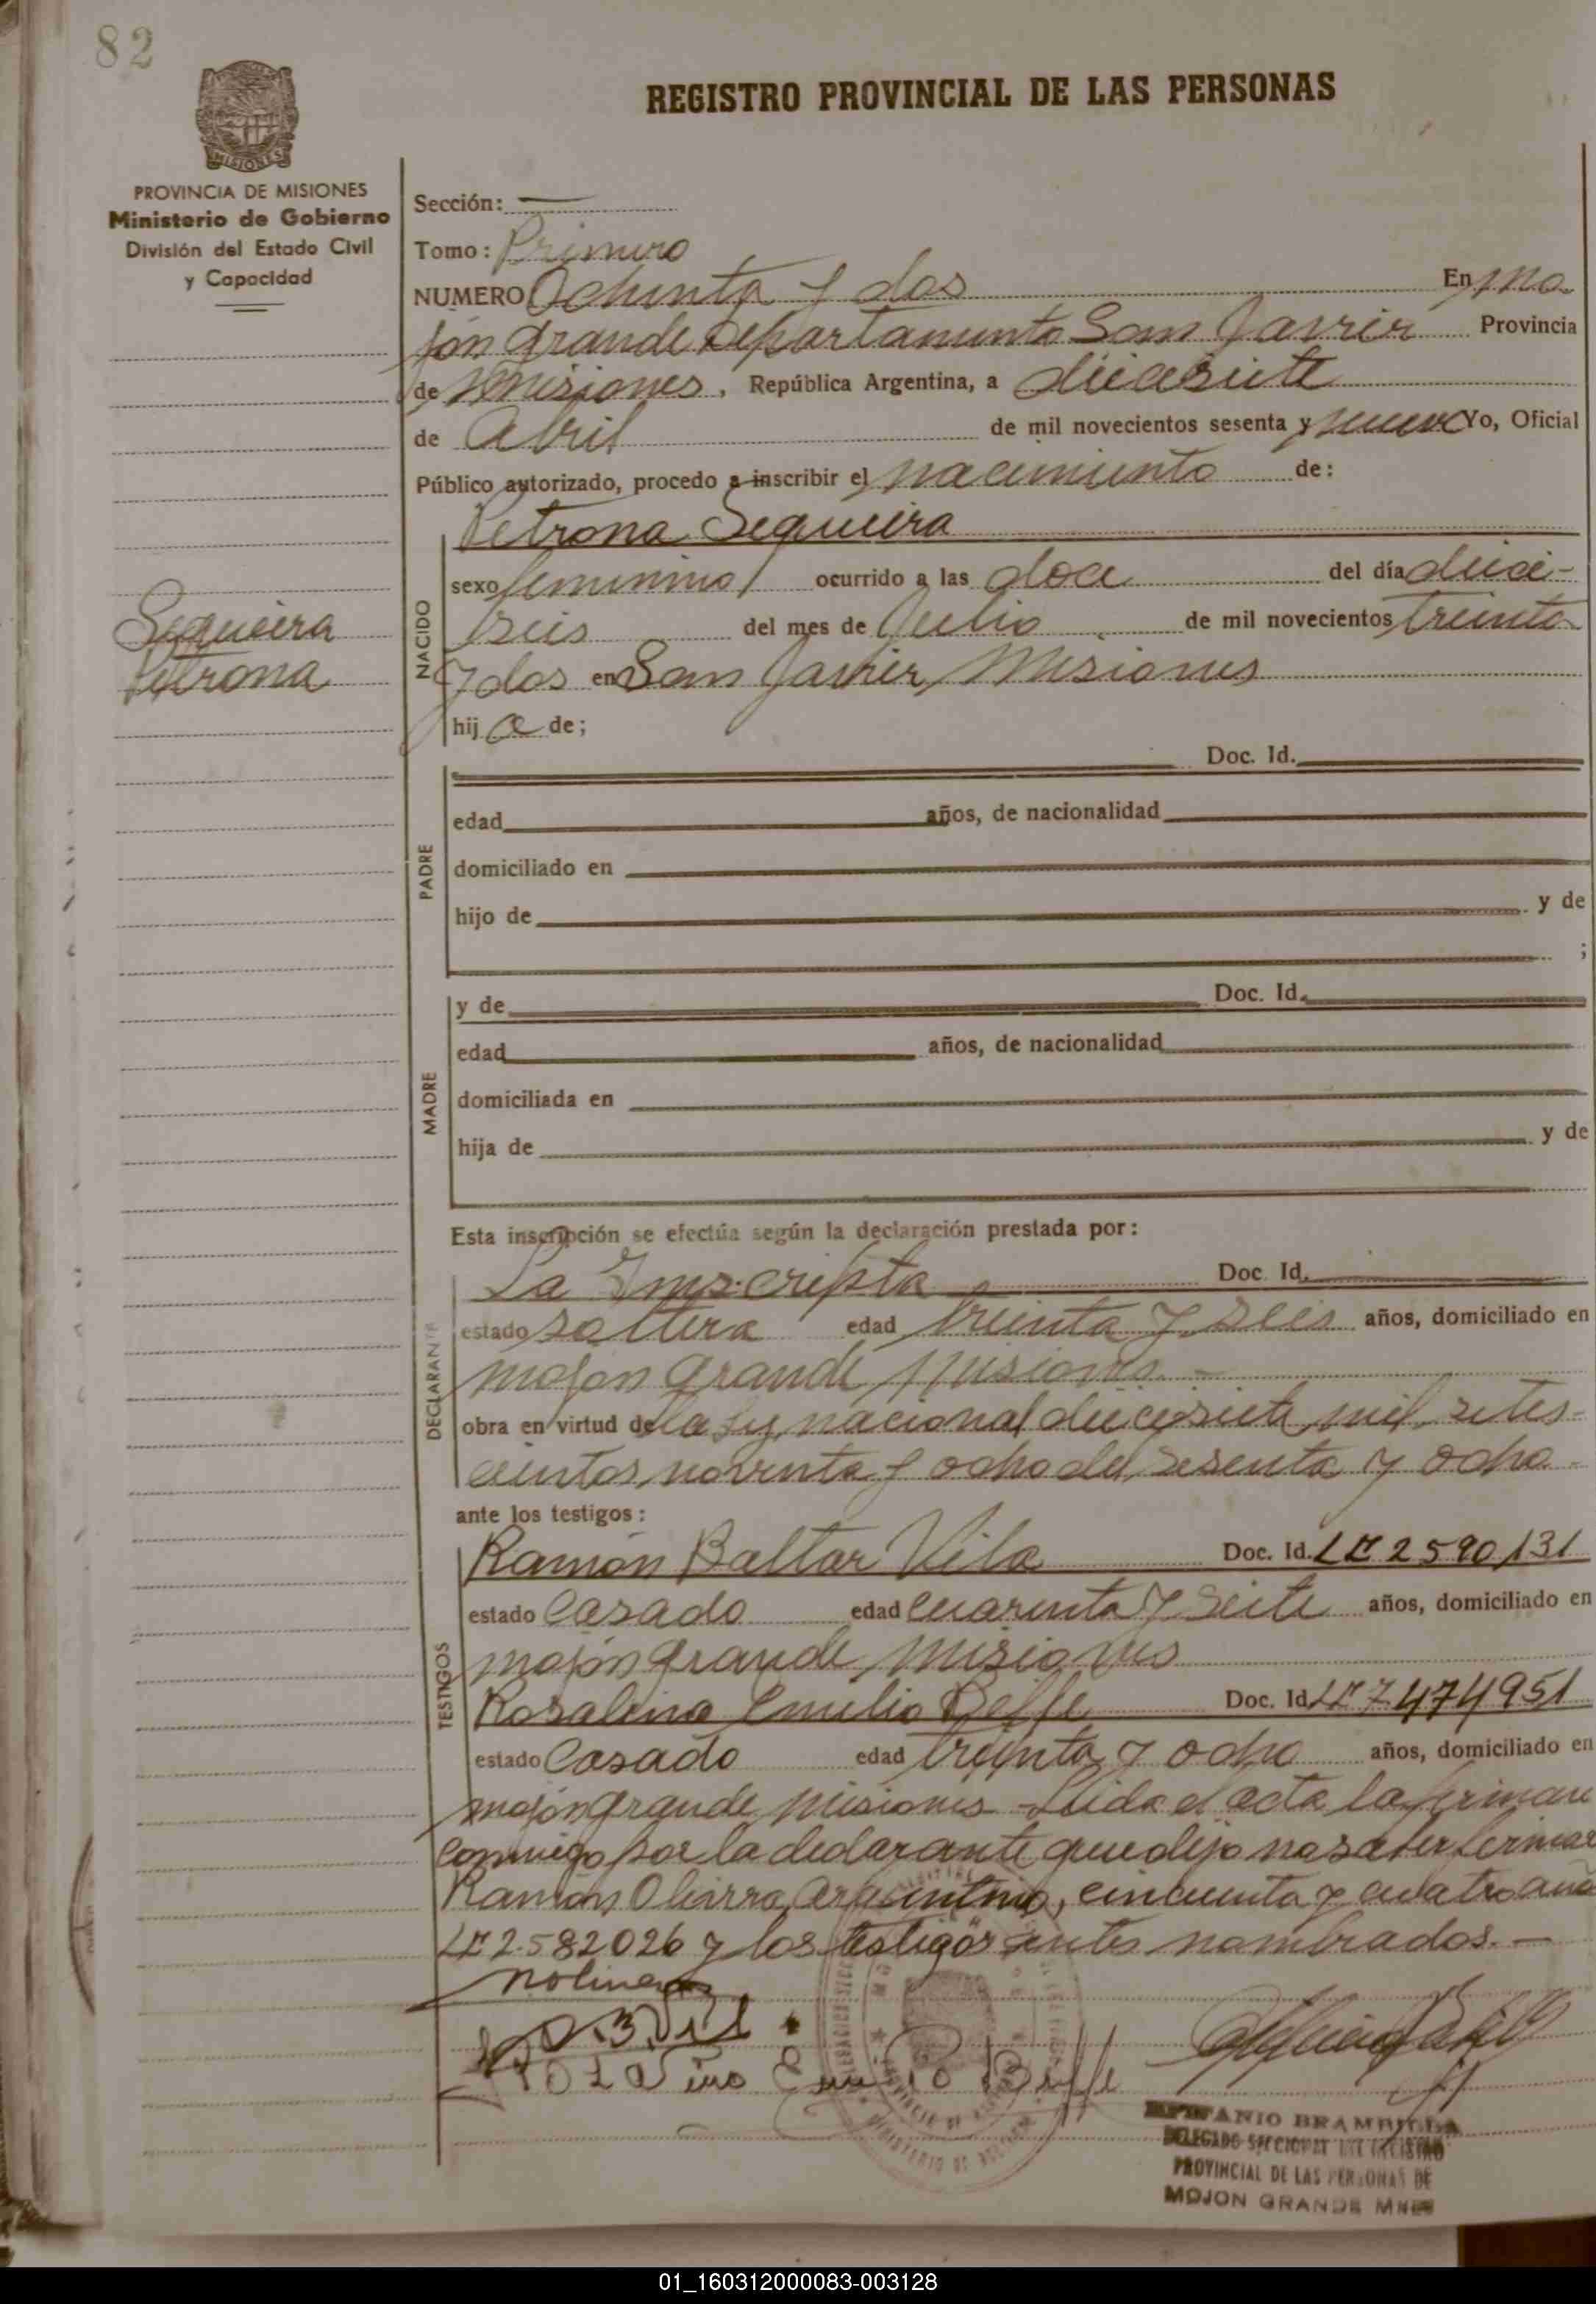 82
REGISTRO PROVINCIAL DE LAS PERSONAS
MISIONES
PROVINCIA DE MISIONES
Ministerio de Gobierno
División del Estado Civil
y Capacidad
Sección: —
Tomo: Primero
NUMERO Ochenta y dos En Mo
jón Grande Departamento San Javier Provincia
de Misiones, República Argentina, a diecisiete
de Abril de mil novecientos sesenta y nueve Yo, Oficial
Público autorizado, procedo a inscribir el nacimiento de:
Petrona Sequeira
NACIDO
sexo femenino ocurrido a las doce del día dieci-
seis del mes de Julio de mil novecientos treinta
y dos en San Javier, Misiones
hija de;
Sequeira
Petrona
PADRE
Doc. Id.
edad años, de nacionalidad
domiciliado en
hijo de y de
;
MADRE
y de Doc. Id.
edad años, de nacionalidad
domiciliada en
hija de y de
Esta inscripción se efectúa según la declaración prestada por:
DECLARANTE
La Inscripta Doc. Id.
estado soltera edad treinta y seis años, domiciliado en
mojón Grande Misiones. -
obra en virtud de la ley nacional diecisiete mil setes-
cientos noventa y ocho del sesenta y ocho. -
ante los testigos:
TESTIGOS
Ramón Baltar Vila Doc. Id. LE 2590131
estado Casado edad cuarenta y seite años, domiciliado en
mojón grande Misiones
Rosalino Emilio Doc. Id LE 7.474951
estado Casado edad treinta y ocho años, domiciliado en
mojón grande Misiones - Leida el acta la firman
conmigo por la declarante que dijo no saber firmar
Ramón argentino, cincuenta y cuatro años
LE 2.582026 y los testigos antes nombrados. —
EPIFANIO BRAMBILLA
DELEGADO SECCIONAL DEL REGISTRO
PROVINCIAL DE LAS PERSONAS DE
MOJON GRANDE MNES
01_160312000083-003128